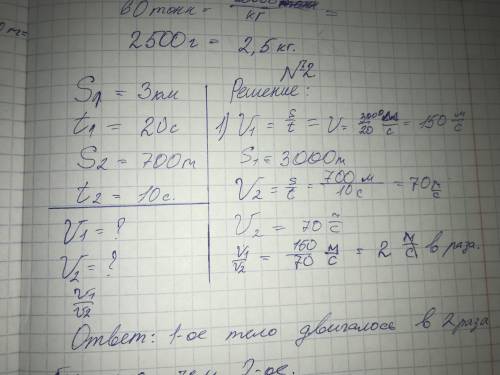 80 тонн =
кг
2500 г = 2,5 кг.
№2
S₁ = 3 км
t₁ = 20 с
S₂ = 700 м
t₂ = 10 с.
V₁ = ?
V₂ = ?
V₁/V₂
Решение:
1) V₁ = s/t = V = 3000/20 м/с = 150 м/с
S₁ = 3000 м
V₂ = s/t = 700 м/10 с = 70 м/с
V₂ = 70 м/с
V₁/V₂ = 150/70 м/с = 2 м/с в раза.
Ответ: 1-ое тело двигалось в 2 раза
чем 2-ое.